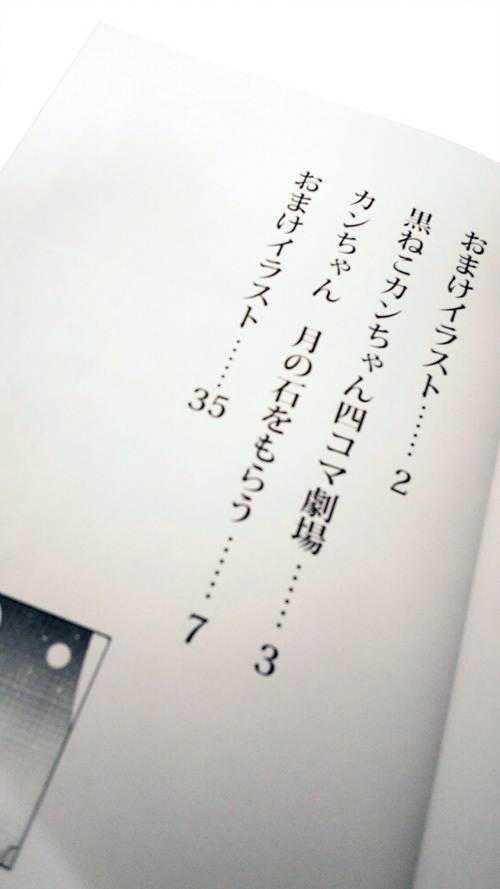 おまけイラスト……2
黒ねこカンちゃん四コマ劇場……3
カンちゃん　月の石をもらう……7
おまけイラスト……35